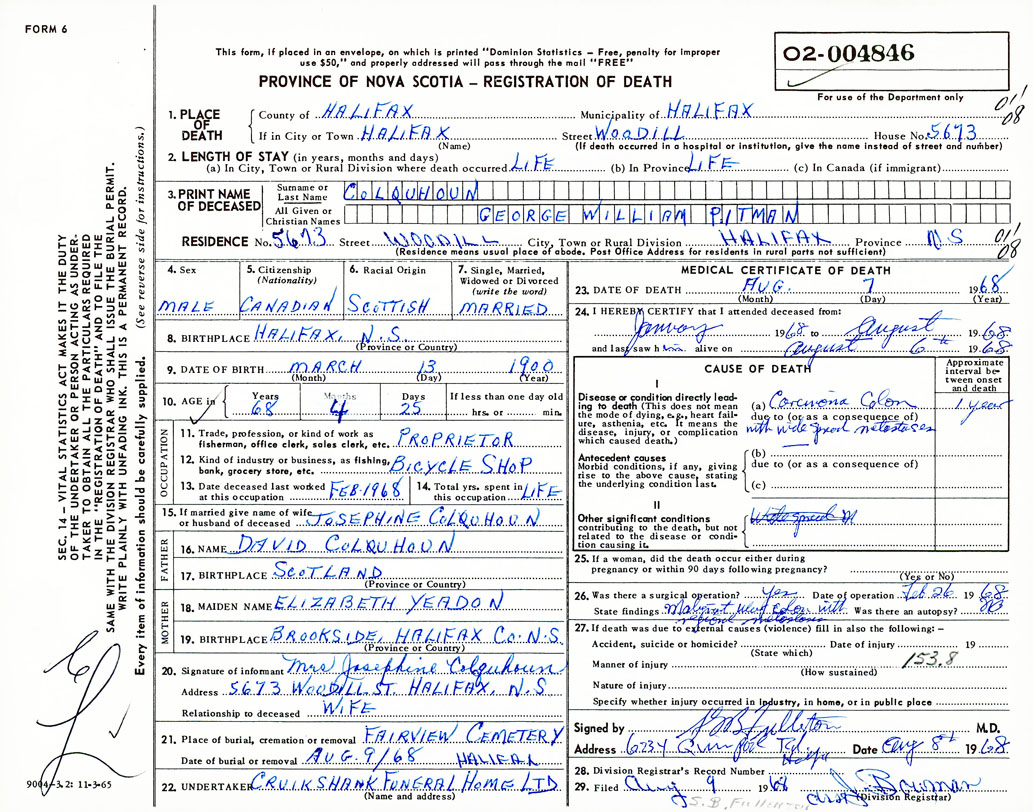 FORM 6
This form, if placed in an envelope, on which is printed "Dominion Statistics – Free, penalty for improper
use $50," and properly addressed will pass through the mail "FREE"
02-004846
PROVINCE OF NOVA SCOTIA – REGISTRATION OF DEATH
For use of the Department only
011
08
1. PLACE OF DEATH
County of HALIFAX Municipality of HALIFAX
If in City or Town HALIFAX Street WOODILL House No. 5673
(Name) (If death occurred in a hospital or institution, give the name instead of street and number)
2. LENGTH OF STAY (in years, months and days)
(a) In City, Town or Rural Division where death occurred LIFE (b) In Province LIFE (c) In Canada (if immigrant)
3. PRINT NAME OF DECEASED
Surname or Last Name COLQUHOUN
All Given or Christian Names GEORGE WILLIAM PITMAN
RESIDENCE No. 5673 Street WOODILL City, Town or Rural Division HALIFAX Province N.S
(Residence means usual place of abode. Post Office Address for residents in rural parts not sufficient)
011
08
4. Sex
MALE
5. Citizenship
(Nationality)
CANADIAN
6. Racial Origin
SCOTTISH
7. Single, Married,
Widowed or Divorced
(write the word)
MARRIED
8. BIRTHPLACE HALIFAX, N.S.
(Province or Country)
9. DATE OF BIRTH MARCH 13 1900
(Month) (Day) (Year)
10. AGE in
Years 68
Months 4
Days 25
If less than one day old
hrs. or min.
OCCUPATION
11. Trade, profession, or kind of work as
fisherman, office clerk, sales clerk, etc. PROPRIETOR
12. Kind of industry or business, as fishing,
bank, grocery store, etc. BICYCLE SHOP
13. Date deceased last worked
at this occupation FEB-1968
14. Total yrs. spent in
this occupation LIFE
15. If married give name of wife
or husband of deceased JOSEPHINE COLQUHOUN
FATHER
16. NAME DAVID COLQUHOUN
17. BIRTHPLACE SCOTLAND
(Province or Country)
MOTHER
18. MAIDEN NAME ELIZABETH YEADON
19. BIRTHPLACE BROOKSIDE, HALIFAX CO. N.S.
(Province or Country)
20. Signature of informant Mrs Josephine Colquhoun
Address 5673 WOODILL ST. HALIFAX, N.S
Relationship to deceased WIFE
21. Place of burial, cremation or removal FAIRVIEW CEMETERY
Date of burial or removal AUG. 9/68 HALIFAX
22. UNDERTAKER CRUIKSHANK FUNERAL HOME LTD
(Name and address)
MEDICAL CERTIFICATE OF DEATH
23. DATE OF DEATH AUG. 7 1968
(Month) (Day) (Year)
24. I HEREBY CERTIFY that I attended deceased from:
January 1968 to August 1968
and last saw him alive on August 6th 1968
CAUSE OF DEATH
Approximate interval between onset and death
I
Disease or condition directly leading to death (This does not mean the mode of dying, e.g., heart failure, asthenia, etc. It means the disease, injury, or complication which caused death.)
(a) Carcinoma Colon 1 year
due to (or as a consequence of)
with wide spread metastases
Antecedent causes
Morbid conditions, if any, giving rise to the above cause, stating the underlying condition last.
(b)
due to (or as a consequence of)
(c)
II
Other significant conditions
contributing to the death, but not related to the disease or condition causing it.
25. If a woman, did the death occur either during
pregnancy or within 90 days following pregnancy?
(Yes or No)
26. Was there a surgical operation? Yes Date of operation Feb 26 1968
State findings Malignant colon with Was there an autopsy? no
regional metastases
27. If death was due to external causes (violence) fill in also the following: –
Accident, suicide or homicide? Date of injury 19
(State which)
Manner of injury 153.8
(How sustained)
Nature of injury
Specify whether injury occurred in industry, in home, or in public place
Signed by M.D.
Address 6234 Quinpool Rd. Date Aug 8th 1968
Halifax
28. Division Registrar's Record Number
29. Filed Aug 9 1968 Bowman
(Division Registrar)
SEC. 14 – VITAL STATISTICS ACT MAKES IT THE DUTY
OF THE UNDERTAKER OR PERSON ACTING AS UNDER-
TAKER TO OBTAIN ALL THE PARTICULARS REQUIRED
IN THE "REGISTRATION OF DEATH" AND TO FILE THE
SAME WITH THE DIVISION REGISTRAR WHO SHALL ISSUE THE BURIAL PERMIT.
WRITE PLAINLY WITH UNFADING INK. THIS IS A PERMANENT RECORD.
Every item of information should be carefully supplied. (See reverse side for instructions.)
9004-3.2: 11-3-65